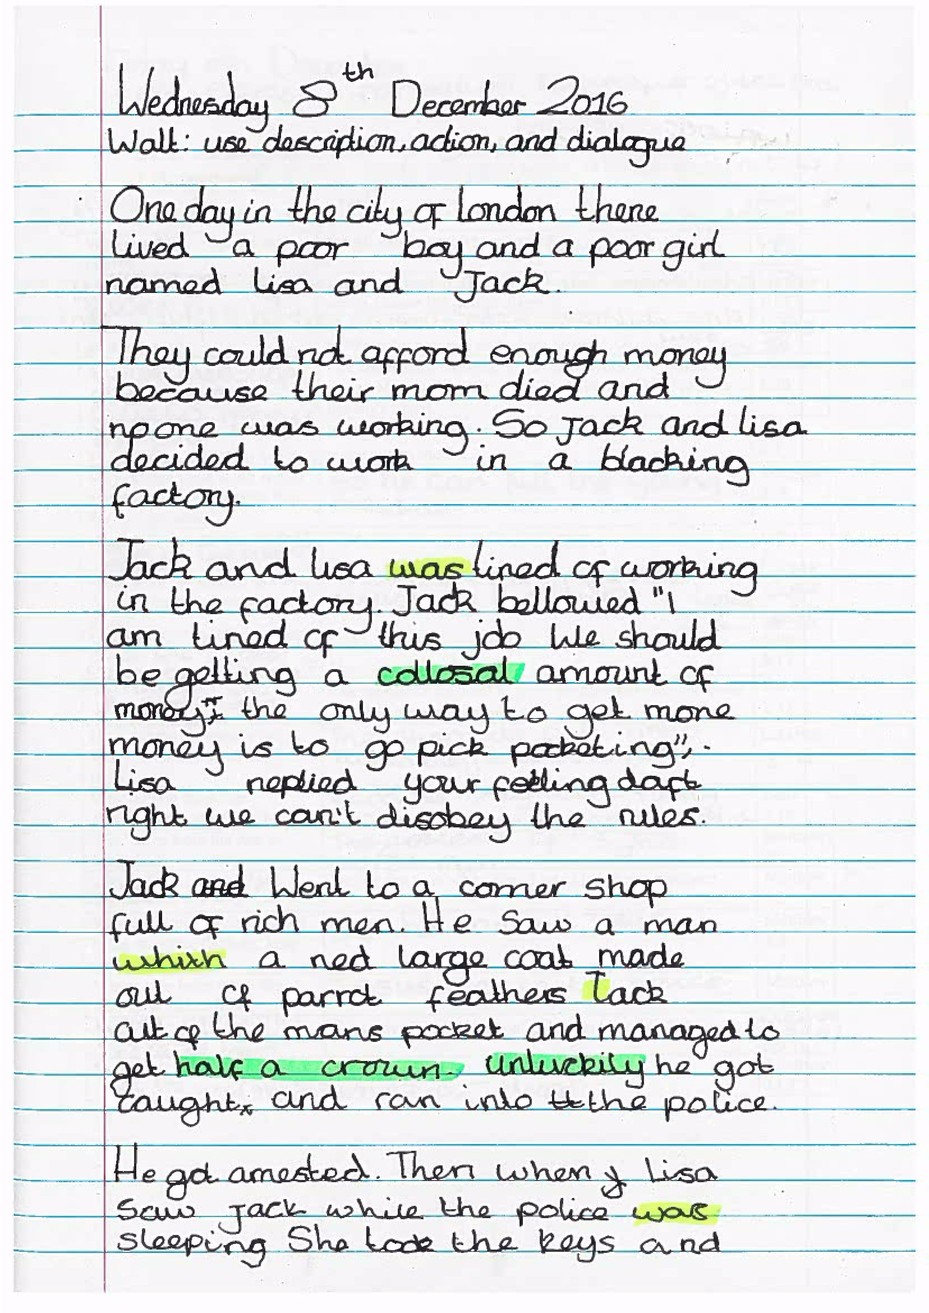 Wednesday 8th December 2016
Walt: use description, action, and dialogue
One day in the city of London there
lived a poor boy and a poor girl
named Lisa and Jack.
They could not afford enough money
because their mom died and
no one was working. So Jack and Lisa
decided to work in a blacking
factory.
Jack and Lisa was tired of working
in the factory. Jack bellowed "I
am tired of this job We should
be getting a collosal amount of
money". the only way to get more
money is to go pick pocketing".
Lisa replied your feeling daft
right we can't disobey the rules.
Jack and Went to a corner shop
full of rich men. He Saw a man
whith a red large coat made
out of parrot feathers Jack
out of the mans pocket and managed to
get half a crown. Unluckily he got
caught, and ran into the police.
He got arrested. Then when Lisa
Saw Jack while the police was
sleeping She took the keys and